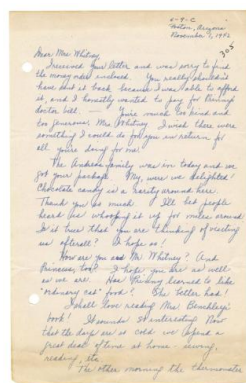 6-9-C
Poston, Arizona
November 7, 1942
305
Dear Mrs. Whitney,
I received your letter and was sorry to find
the money order enclosed. You really shouldn't
have sent it back because I was able to afford
it, and I honestly wanted to pay for
doctor bill. You're much too kind and
too generous, Mrs Whitney. I wish there were
something I could do for you in return for
all you're doing for me!
The Andrews family was in today and we
got your package. My, were we delighted!
Chocolate candy is a rarity around here.
Thank you so much. I'll bet people
heard us whooping it up for miles around.
Is it true that you are thinking of visiting
us afterall? I hope so!
How are you and Mr Whitney? And
Princess, too? I hope you are as well
as we are. Has learned to like
"ordinary cat" food? She better had!
I shall love reading Mrs.
book! It sounds so interesting. Now
that the days are so cold we spend a
great deal of time at home - sewing,
reading, etc.
The other morning the thermometer